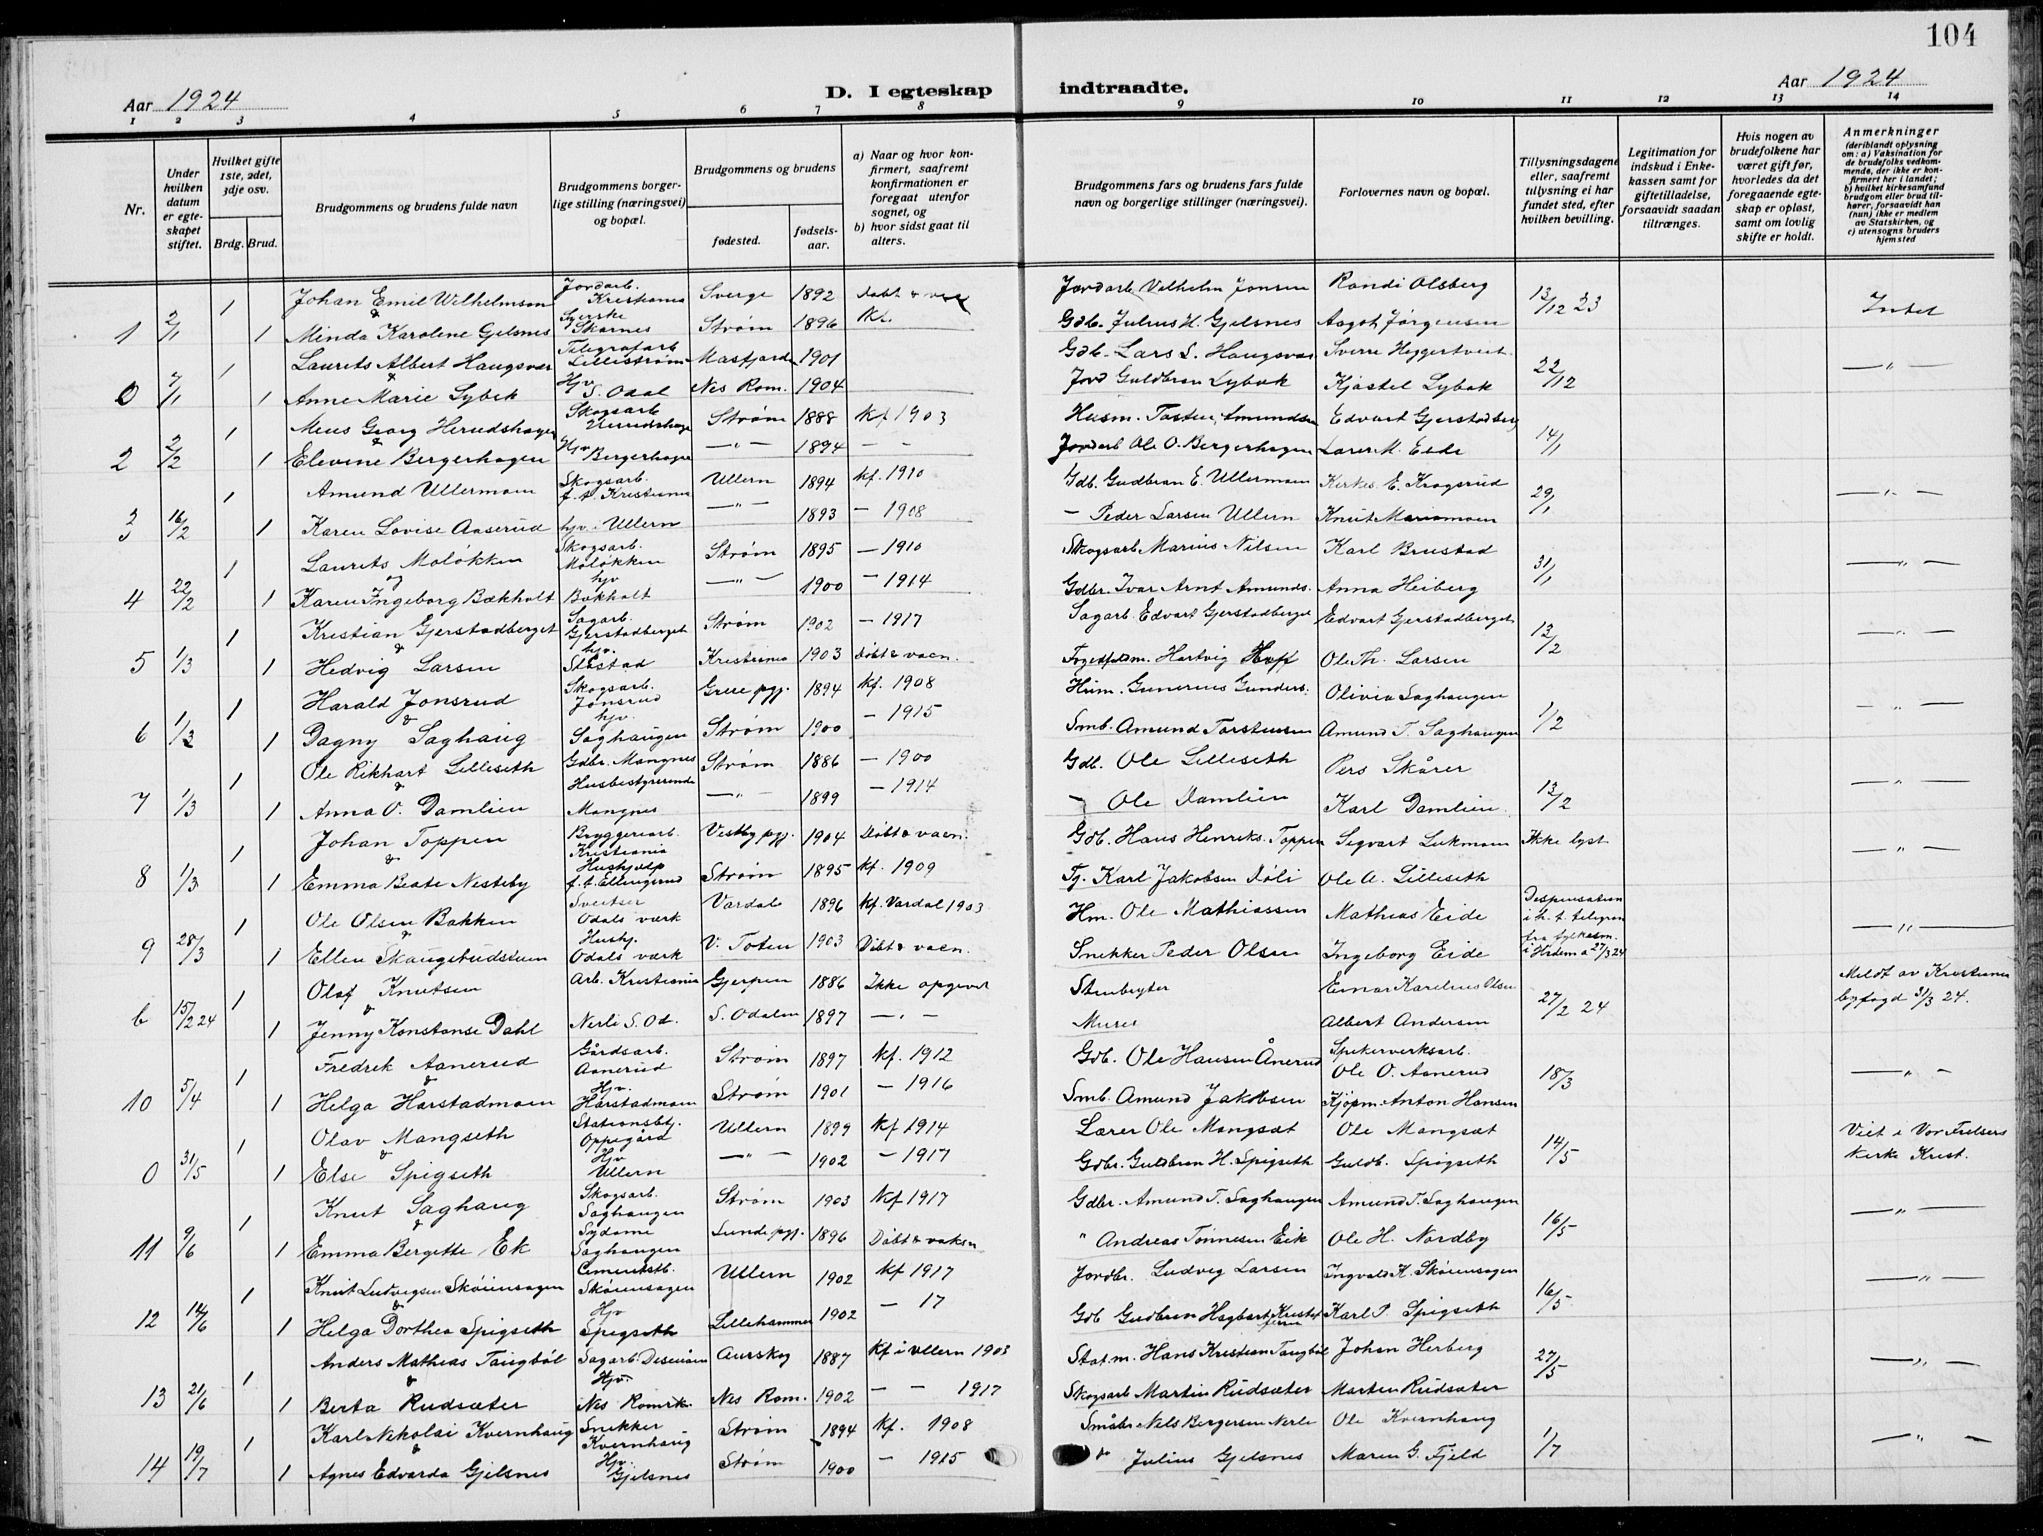 104
Aar 1924
D. I egteskap
indtraadte.
Aar 1924
1 2 3 4 5 6 7 8 9 10 11 12 13 14
Nr.
Under hvilken datum er egteskapet stiftet.
Hvilket gifte 1ste, 2det, 3dje osv.
Brdg. Brud.
Brudgommens og brudens fulde navn
Brudgommens borgerlige stilling (næringsvei) og bopæl.
Brudgommens og brudens
fødested.
fødselsaar.
a) Naar og hvor konfirmert, saafremt konfirmationen er foregaat utenfor sognet, og
b) hvor sidst gaat til alters.
Brudgommens fars og brudens fars fulde navn og borgerlige stillinger (næringsvei).
Forlovernes navn og bopæl.
Tillysningsdagene eller, saafremt tillysning ei har fundet sted, efter hvilken bevilling.
Legitimation for indskud i Enkekassen samt for giftetilladelse, forsaavidt saadan tiltrænges.
Hvis nogen av brudefolkene har været gift før, hvorledes da det foregaaende egteskap er opløst, samt om lovlig skifte er holdt.
Anmerkninger (deriblandt oplysning om: a) Vaksination for de brudefolks vedkommende, der ikke er konfirmert her i landet; b) hvilket kirkesamfund brudgom eller brud tilhører, forsaavidt han (hun) ikke er medlem av Statskirken, og c) utensogns bruders hjemsted
1 Johan Emil Wilhelmsen Jordarb. Kristiania Sverge 1892 Døbt & vac. Jordarb. Velhelm Jonsen Randi Olsberg 13/12 23 Intet
1 2/1 & 1 Minda Karolene Gjelsnes Syerske Skarnes Strøm 1896 Kf. Gdb. Julius H. Gjelsnes Aagot Jørgensen
1 Laurits Albert Haugsvær Telegrafarb Lillestrøm Masfjorden 1901 Gdb. Lars L. Haugsvær Sverre Heggertveit 22/12 — " —
0 7/1 & 1 Anne Marie Lybek Hjv S. Odal Nes Rom. 1904 Jord Guldbran Lybæk Kjøstel Lybæk
1 Meus Georg Herudshagen Skogsarb Herudshage Strøm 1888 Kf 1903 Husm. Tosten Amundsen Edvart Gjerstadberg 14/1
2 2/2 & 1 Elevine Bergerhagen Hjv Bergerhage — " — 1894 — — Jordarb Ole O. Bergerhagen Lærer M. Eide
1 Amund Ullermoen Skogsarb. f. t. Kristiania Ullern 1894 kf. 1910 Gdb. Gudbran E. Ullermoen Kirkes. E. Krogsrud 29/1 — " —
3 16/2 1 Karen Lovise Aaserud hjv. Ullern — " — 1893 — 1908 — Peder Larsen Ullern Knut Mariamoen
1 Laurits Moløkken Skogsarb. Moløkken Strøm 1895 — 1910 Skogsarb Marius Nilsen Karl Brustad 31/1 — " —
4 22/2 og 1 Karen Ingeborg Bækholt hjv Bækholt — " — 1900 — 1914 Gdbr. Ivar Arnt Amunds. Anna Heiberg
1 Kristian Gjerstadberget Sagarb. Gjerstadberget Strøm 1902 — 1917 Sagarb. Edvart Gjerstadberget Edvart Gjerstadberget 13/2 — " —
5 1/3 & 1 Hedvig Larsen hjv. Kristiania 1903 Døbt & vacn. Hartvig Hoff Ole Th. Larsen
1 Harald Jonsrud Skogsarb. Jonsrud Grue pgj. 1894 kf. 1908 Hum. Gunerius Gunders. Olivia Saghaugen 1/2 — " —
6 1/3 & 1 Dagny Saghaug hjv. Saghaugen Strøm 1900 — 1915 Smb. Amund Torstensen Amund T. Saghaugen
1 Ole Rikhart Lilleseth Gdbr. Mangnes Strøm 1886 — 1900 Gdb. Ole Lilleseth Pers Skårer 13/2 — " —
7 1/3 & 1 Anna O. Damlien Husbestyrerinde Mangnes — " — 1899 — 1914 — Ole Damlien Karl Damlien
1 Johan Toppen Bryggeriarb. Kristiania Vestby pgj. 1904 Døbt & vacn. Gdb. Hans Henriks. Toppen Segvart Lukmoen Ikke lyst — " —
8 1/3 & 1 Emma Beate Nesteby Hushjelp f. t. Ellingsrud Strøm 1895 kf. 1909 Tg. Karl Jakobsen Døli Ole A. Lilleseth
1 Ole Olsen Bakken Sveitser Odals værk Vardal 1896 kf. Vardal 1903 Hm. Ole Mathiassen Mathias Eide Despensation i h. t. telegram fra fylkesm. 27/3 24 — " —
9 28/3 & 1 Ellen Skaugsbudstuen Hushj. Odals værk V. Toten 1903 Døbt & vacn. Snekker Peder Olsen Ingeborg Eide
1 Olaf Knutsen Arb. Kristiania Gjerpen 1886 Ikke opgivet Stenbryter Einar Karelius Olsen 27/2 24 Meldt av Kristiania byfogd 31/3 24.
15/2 24 & 1 Jenny Konstanse Dahl Nerli S. Od. S. Odalen 1897 — " — Murer Albert Andersen
1 Fredrik Aanerud Gårdsarb. Aanerud Strøm 1897 kf. 1912 Gdb. Ole Hansen Ånerud Spekerverksarb. Ole O. Aanerud 18/3 — " —
10 5/4 & 1 Helga Harstadmoen Hjv. Harstadmoen Strøm 1901 — 1916 Smb. Amund Jakobsen Kjøpm. Anton Hansen
1 Olav Mangseth Stationsbtj. Oppegård Ullern 1899 kf 1914 Lærer Ole Mangsæt Ole Mangsæt 14/5 Viet i Vor Frelsers kirke Krist.
0 31/5 & 1 Else Spigseth Hjv Ullern — " — 1902 — 1917 Gdbr. Guldbran H. Spigseth Guldb. Spigseth
1 Knut Saghaug Skogsarb. Saghaugen Strøm 1903 Kf 1917 Gdbr. Amund T. Saghaugen Amund T. Saghaugen 16/5 — " —
11 9/6 & 1 Emma Bergette Ek Sydame Saghaugen Lunde pgj. 1896 Døbt & vaksn " Andreas Tønnesen Eik Ole H. Nordby
1 Knut Ludvigsen Skøiensagen Cementstb. Skøiensagen Ullern 1902 kf 1917 Jordbr. Ludvig Larsen Ingvald K. Skøiensagen 16/5 — " —
12 14/6 & 1 Helga Dorthea Spigseth Hjv Spigseth Lillehammer 1902 — 17 Gdb Gudbran Hagbart Karl P. Spigseth
1 Anders Mathias Taugbøl Sagarb. Disenåen Aurskog 1887 Kf i Ullern 1903 Stat.m. Hans Kristian Taugbøl Johan Herberg 27/5 — " —
13 21/6 & 1 Berta Rudsæter Hjv. Nes Romrk. Nes Rom. 1902 — — 1917 Skogsarb Martin Rudsæter Marten Rudsæter
1 Karl Nikolai Kvernhaug Snekker Kvernhaug Strøm 1894 kf. 1908 Småbr Nels Bergersen Nerli Ole Kvernhaug 1/7 — " —
14 19/7 & 1 Agnes Edvarda Gjelsnes Hjv. Gjelsnes Strøm 1900 — 1915 " Julius Gjelsnes Maren G. Fjeld